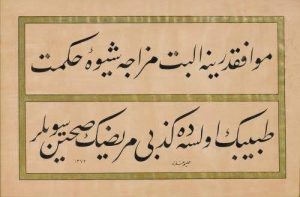 موافقدر ينه البت مزاجه شیوهٔ حکمت
طبیبڭ اولسه ده کذبی مریضڭ صحتین سویلر